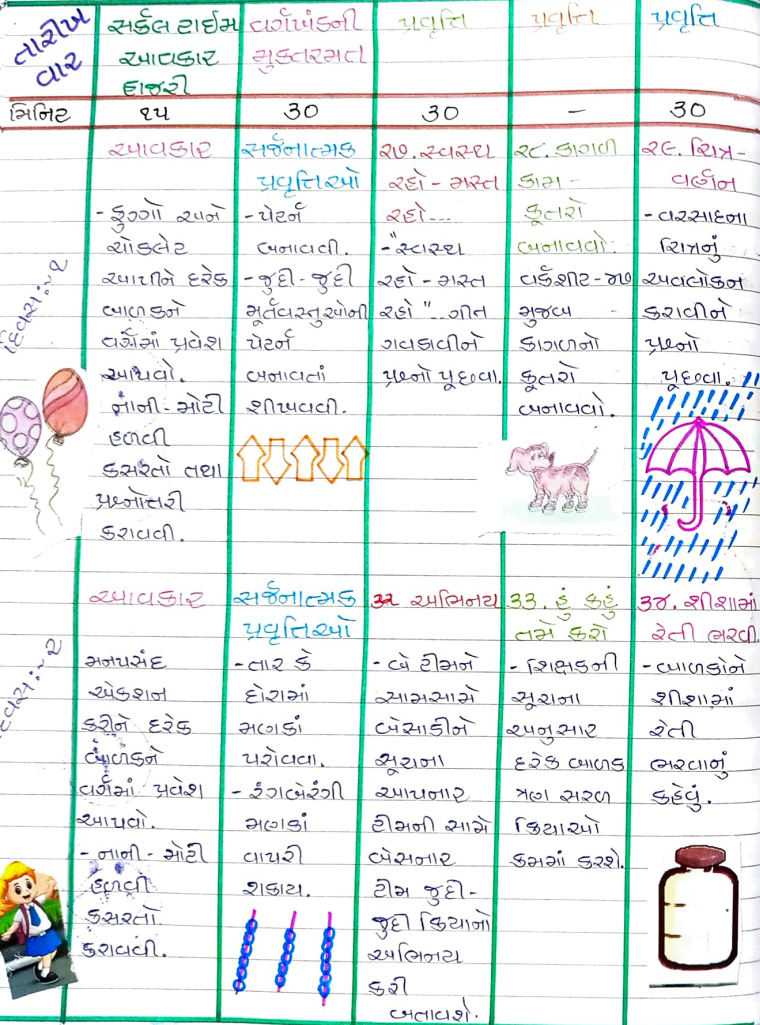 તારીખ
વાર
સર્કલ ટાઈમ
આવકાર
હાજરી
વર્ગખંડની
મુક્તરમત
પ્રવૃત્તિ
પ્રવૃત્તિ
પ્રવૃત્તિ
મિનિટ
૧૫
30
30
-
30
દિવસ:-૧
આવકાર
- ફુગ્ગો અને
ચોકલેટ
આપીને દરેક
બાળકને
વર્ગમાં પ્રવેશ
આપવો.
નાની-મોટી
હળવી
કસરતો તથા
પ્રશ્નોત્તરી
કરાવવી.
સર્જનાત્મક
પ્રવૃત્તિઓ
- પેટર્ન
બનાવવી.
- જુદી-જુદી
મૂર્તવસ્તુઓની
પેટર્ન
બનાવતાં
શીખવવી.
૨૭. સ્વસ્થ
રહો - મસ્ત
રહો...
- "સ્વસ્થ
રહો - મસ્ત
રહો "... ગીત
ગવડાવીને
પ્રશ્નો પૂછવા.
૨૮. કાગળ
કામ -
કૂતરો
બનાવવો.
વર્કશીટ-૪૭
મુજબ -
કાગળનો
કૂતરો
બનાવવો.
૨૯. ચિત્ર -
વર્ણન
- વરસાદના
ચિત્રનું
અવલોકન
કરાવીને
પ્રશ્નો
પૂછવા.
દિવસ:-૨
આવકાર
મનપસંદ
એકશન
કરીને દરેક
બાળકને
વર્ગમાં પ્રવેશ
આપવો.
- નાની-મોટી
હળવી
કસરતો
કરાવવી.
સર્જનાત્મક
પ્રવૃત્તિઓ
- તાર કે
દોરામાં
મણકાં
પરોવવા.
- રંગબેરંગી
મણકાં
વાપરી
શકાય.
૩૨ અભિનય
- બે ટીમને
સામસામે
બેસાડીને
સૂચના
આપનાર
ટીમની સામે
બેસનાર
ટીમ જુદી-
જુદી ક્રિયાનો
અભિનય
કરી
બતાવશે.
૩૩. હું કહું
તમે કરો
- શિક્ષકની
સૂચના
અનુસાર
દરેક બાળક
ત્રણ સરળ
ક્રિયાઓ
ક્રમમાં કરશે.
૩૪. શીશામાં
રેતી ભરવી.
- બાળકોને
શીશામાં
રેતી
ભરવાનું
કહેવું.